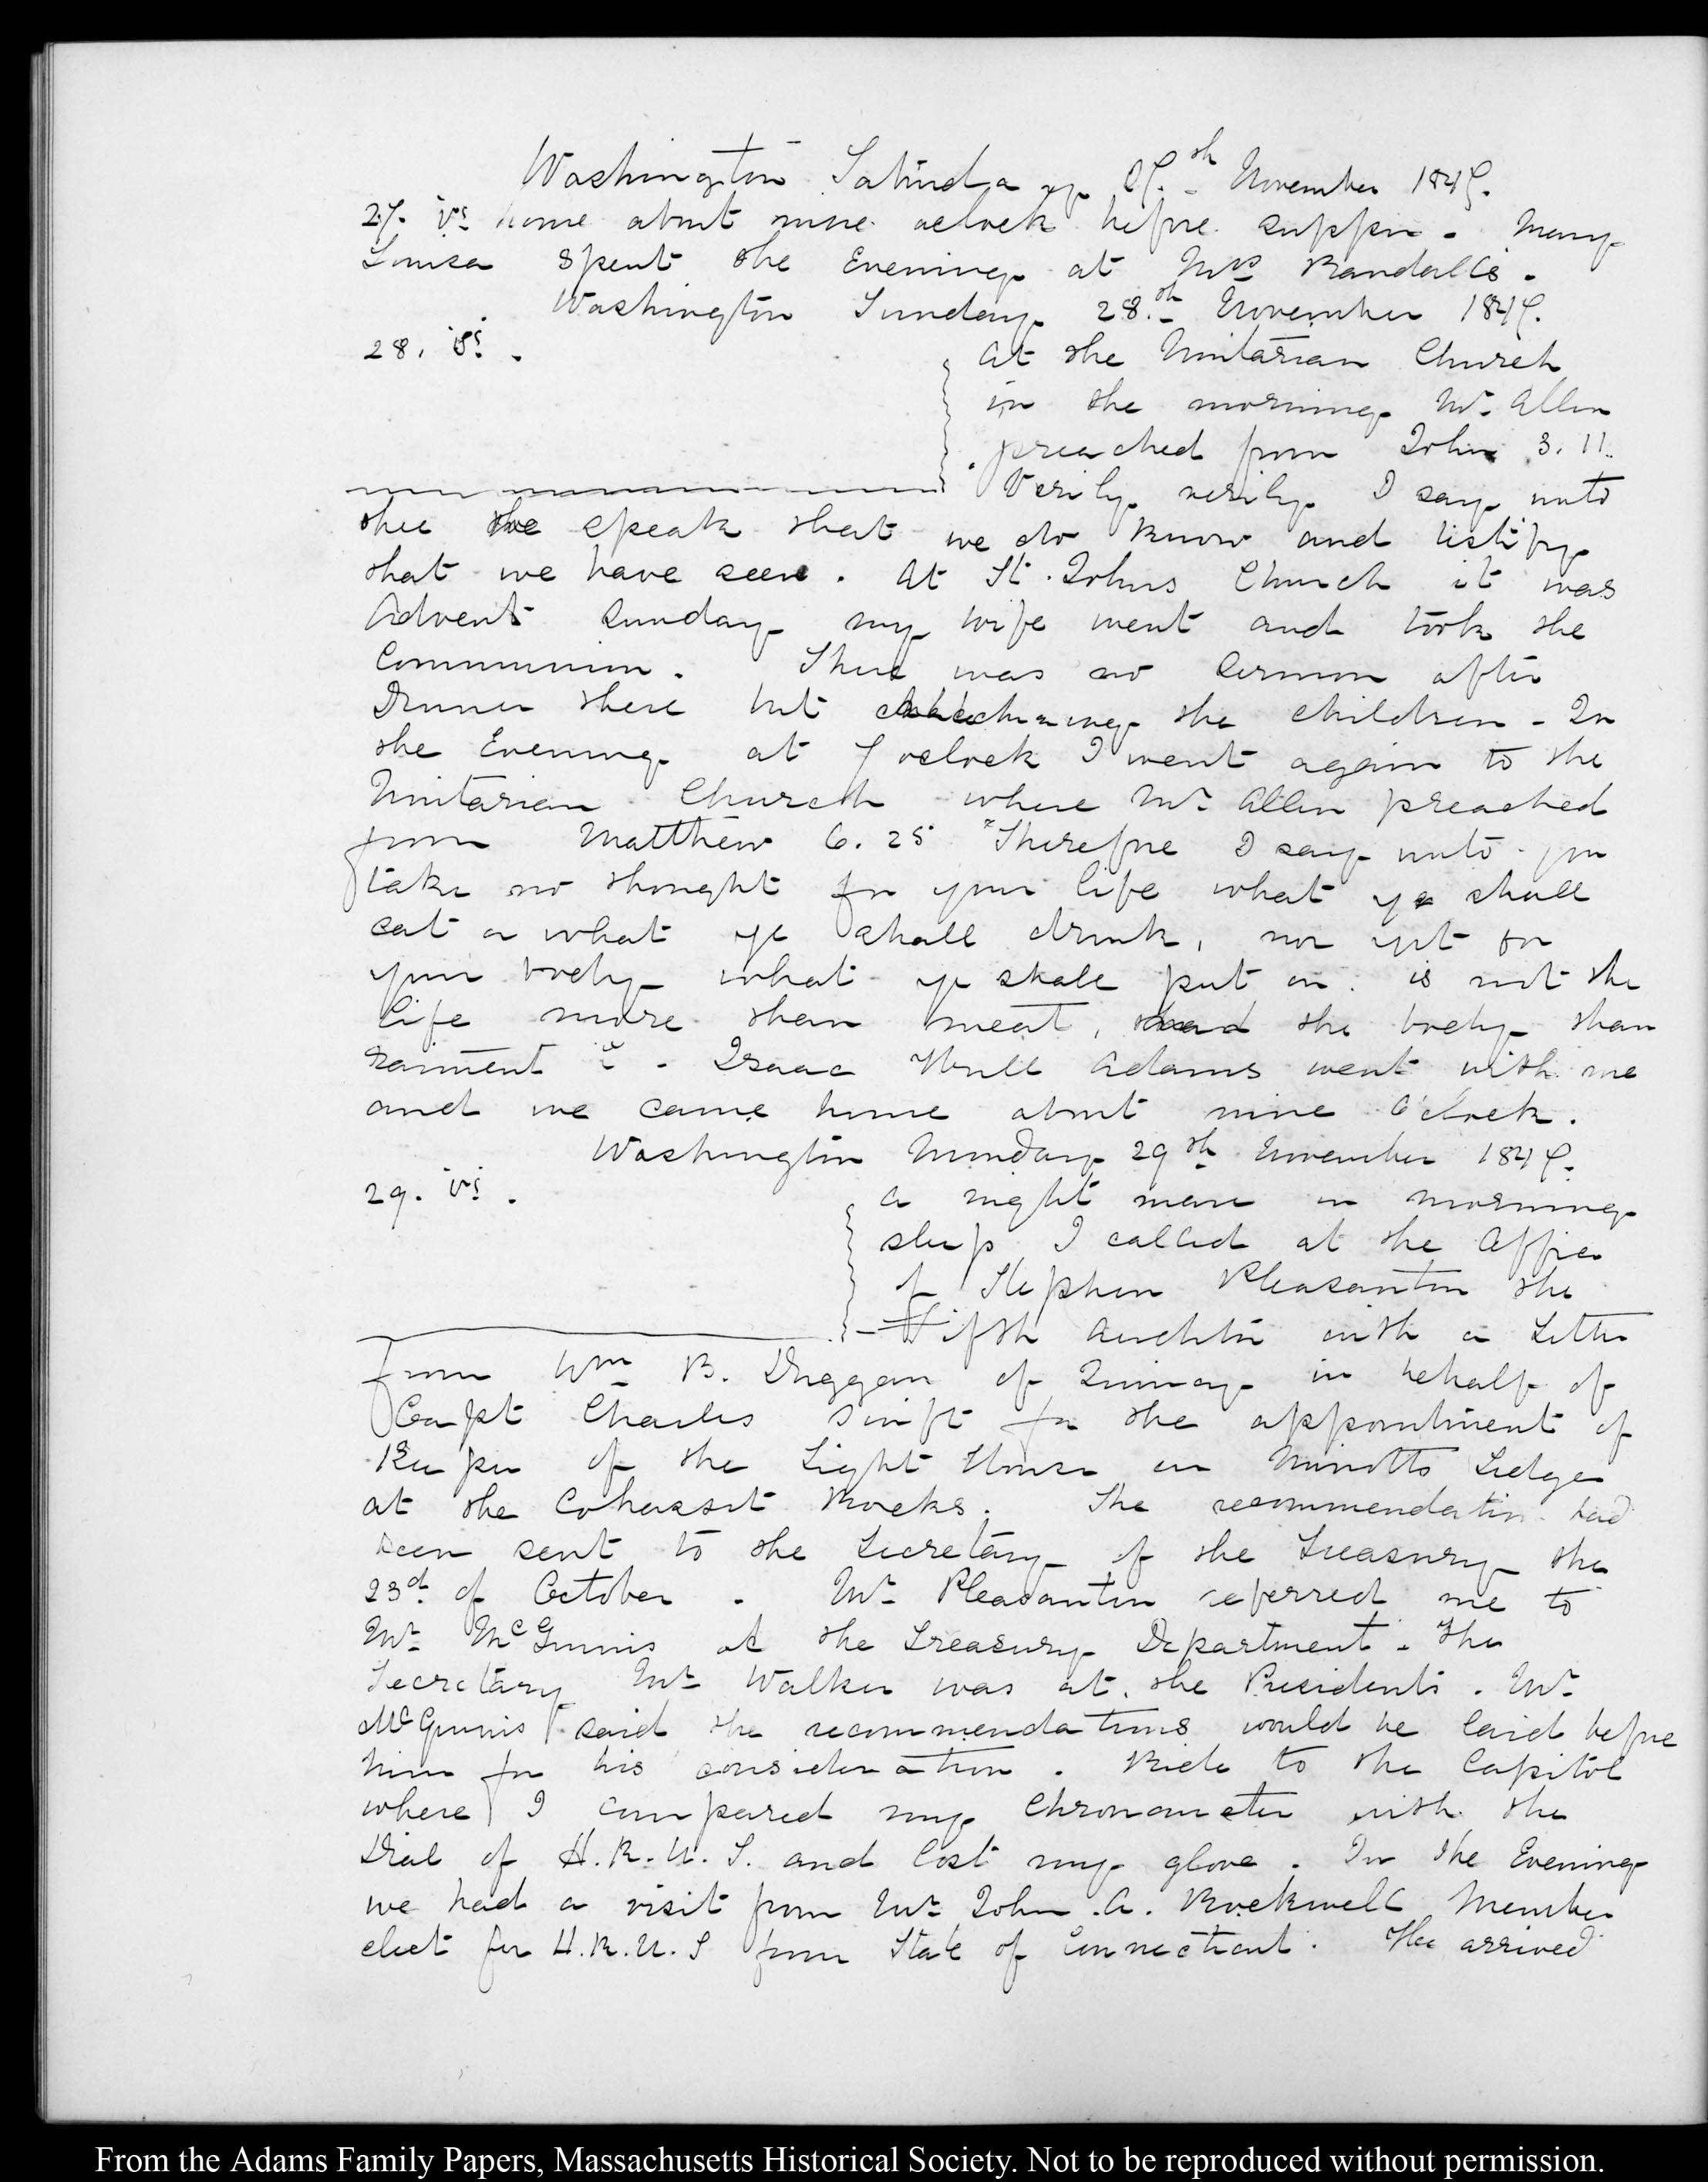 Washington Saturday 27.th November 1847.
27. VI home about nine oclock before supper. Mary
Louisa spent the Evening at Mrs Randall's.
Washington Sunday 28.th November 1847.
28. VI. At the Unitarian Church
in the morning Mr. Allen
preached from John 3. 11.
Verily verily I say unto
thee We speak that we do know and testify
that we have seen. At St. Johns Church it was
Advent Sunday my wife went and took the
Communion. There was no Sermon after
Dinner there but the children. In
the Evening at 7 oclock I went again to the
Unitarian Church where Mr. Allen preached
from Matthew 6. 25 "Therefore I say unto you
take no thought for your life what ye shall
eat or what ye shall drink, nor yet for
your body what ye shall put on. is not the
life more than meat, and the body than
raiment". Isaac Hull Adams went with me
and we came home about nine O'clock.
Washington Monday 29th November 1847.
29. VI. A night mare in morning
sleep. I called at the Office
of Stephen Pleasanton the
Fifth Auditor with a Letter
from Wm B. Duggan of Quincy in behalf of
Capt Charles Swift for the appointment of
Keeper of the Light House on Minotts Ledge
at the Cohasset Rocks. The recommendation had
been sent to the Secretary of the Treasury the
23d. of October. Mr. Pleasanton referred me to
Mr. McGinnis at the Treasury Department. The
Secretary Mr. Walker was at the Presidents. Mr.
McGinnis said the recommendations would be laid before
him for his consideration. Ride to the Capitol
where I compared my Chronometer with the
Dial of H.R.U.S. and lost my glove. In the Evening
we had a visit from Mr. John A. Rockwell Member
elect for H.R.U.S from State of Connecticut. He arrived
From the Adams Family Papers, Massachusetts Historical Society. Not to be reproduced without permission.